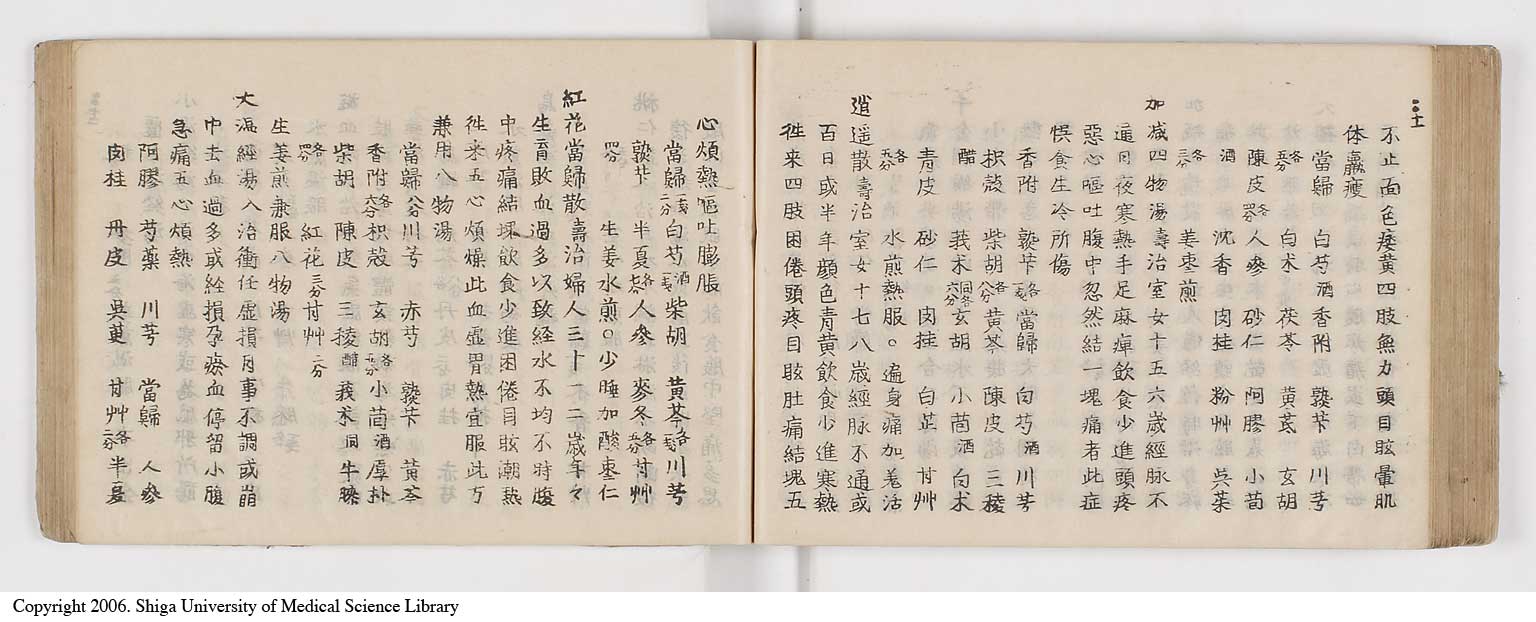 不止面色痿黄四肢無力頭目眩暈肌
体羸瘦
當歸 白芍酒香附 熟苄 川芎
各五分 白朮 茯苓 黄芪 玄胡
陳皮各四分人參 砂仁 阿膠 小茴
酒 沈香 肉桂 粉艸 呉茱
各三分 姜枣煎
加减四物湯壽治室女十五六歳經脉不
通日夜寒熱手足麻痺飲食少進頭疼
惡心嘔吐腹中忽然結一塊痛者此症
悞食生冷所傷
香附 熟苄各一戔當歸 白芍酒川芎
枳殻 柴胡各八分黄芩 陳皮 三稜
醋 莪朮同各六分玄胡 小茴酒白朮
青皮 砂仁 肉桂 白芷 甘艸
各三分 水煎熱服。遍身痛加羗活
逍遥散壽治室女十七八歳經脉不通或
百日或半年顔色青黄飲食少進寒熱
徃来四肢困倦頭疼目眩肚痛結塊五
心煩熱嘔吐膨脹
當歸 白芍酒柴胡 黄芩各一戔川芎
熟苄 半夏各六分人參 麥冬各五分甘艸
四分 生姜水煎。少睡加酸枣仁
紅花當歸散壽治婦人三十一二歳年々
生育敗血過多以致経水不均不時腹
中疼痛結塊飲食少進困倦目眩潮熱
徃来五心煩燥此血虚胃熱宜服此方
兼用八物湯
當歸八分川芎 赤芍 熟苄 黄芩
香附各六分枳殻 玄胡各五分小茴酒厚朴
柴胡 陳皮 三稜醋莪朮同牛膝
各四分 紅花三分甘艸二分
生姜煎兼服八物湯
大温經湯入治衝任虚損月事不調或崩
中去血過多或経損孕瘀血停留小腹
急痛五心煩熱
阿膠 芍藥 川芎 當歸 人參
肉桂 丹皮 呉茰 甘艸各二分半夏